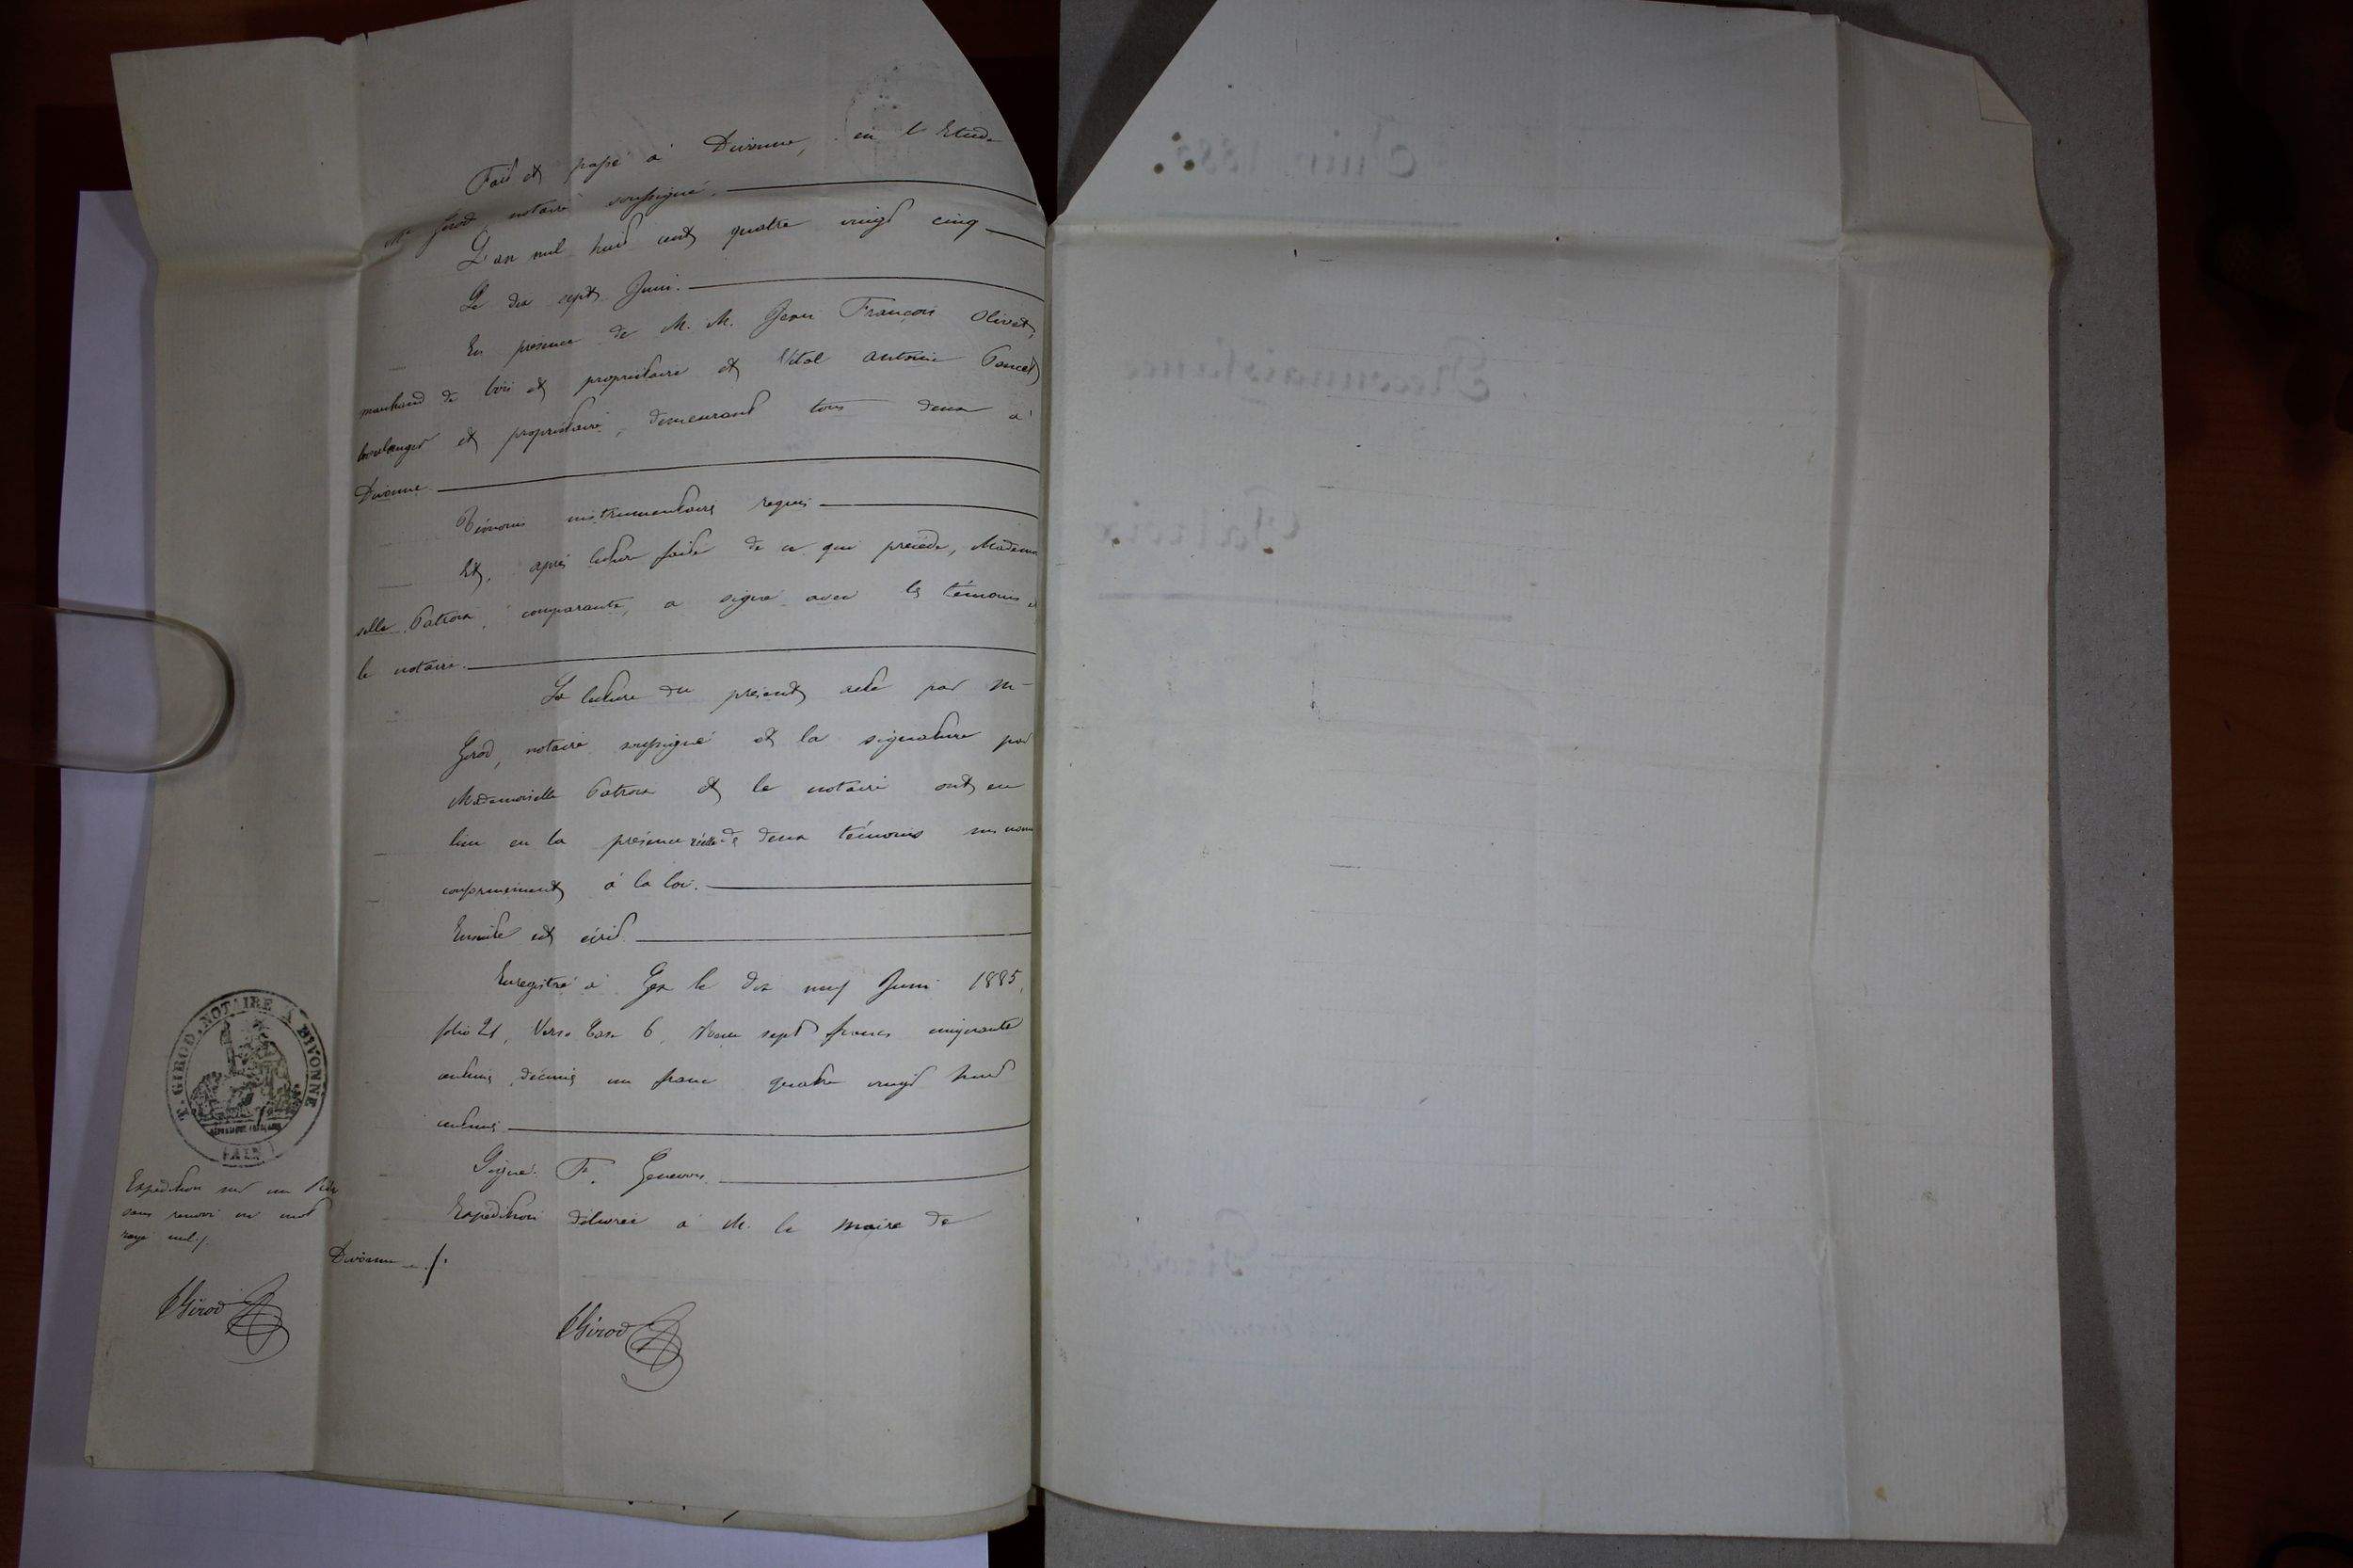 Fait et passé à Divonne, en l'Etude
Me Girod, notaire soussigné.
L'an mil huit cent quatre vingt cinq
Le dix sept Juin.
En presence de M. M. Jean François Olivet,
marchand de bois et propriétaire et Vital Antoine Poncet
boulanger et propriétaire, demeurant tous deux à
Divonne
Témoins instrumentaires requis
Et, après lecture faite de ce qui précède, Mademoi
selle Patroix, comparante, a signé avec les témoins et
le notaire.
La lecture du présent acte par Me
Girod, notaire soussigné et la signature par
Mademoiselle Patroix et le notaire ont eu
lieu en la présence réelle des deux témoins sus nom
conformément à la loi.
Ensuite est écrit.
Enregistré à Gex le dix neuf Juin 1885,
folio 21, Verso Case 6, Reçu sept francs cinquante
centimes, décimes un franc quatre vingt huit
centimes
Signé: F.
Expédition délivrée à M. le Maire de
Divonne ./.
Girod
T. GIROD. NOTAIRE A DIVONNE
RÉPUBLIQUE FRANÇAISE
(AIN)
Expédition sur un Rôle
sans renvoi un mot
rayé nul ./.
Girod
Juin 1885
Reconnaissance
Patroix
Girod